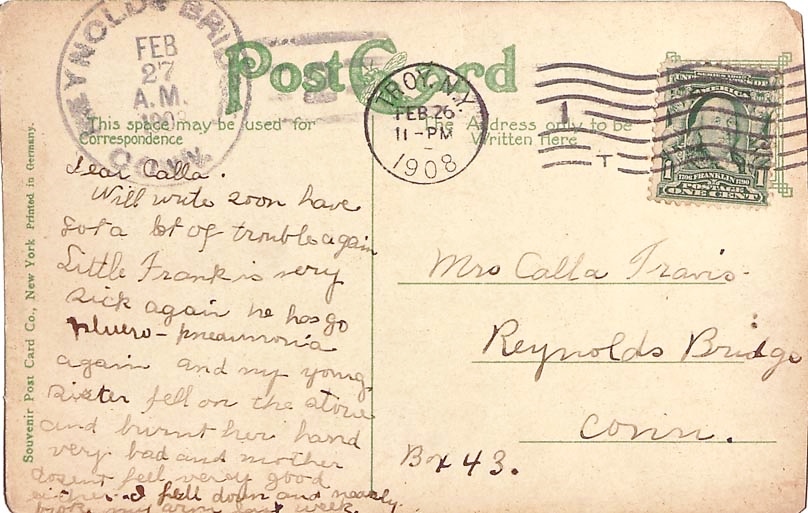 REYNOLDS BRIDGE
FEB
27
A.M.
1908
CONN.
Post Card
TROY, N.Y.
FEB 26
11-PM
1908
1
T
This space may be used for
Correspondence
Address only to be
Written Here
POSTAGE
1706 FRANKLIN 1790
ONE CENT
Souvenir Post Card Co., New York Printed in Germany.
dear Calla.
Will write soon have
got a lot of trouble again
Little Frank is very
sick again he has go
pluero-pneaumonia
again and my young
sister fell on the stove
and burnt her hand
very bad and mother
dosent fell verey good
either I fell down and nearly
broke my arm last week.
Mrs Calla Travis.
Reynolds Bridge
Conn.
Box 43.